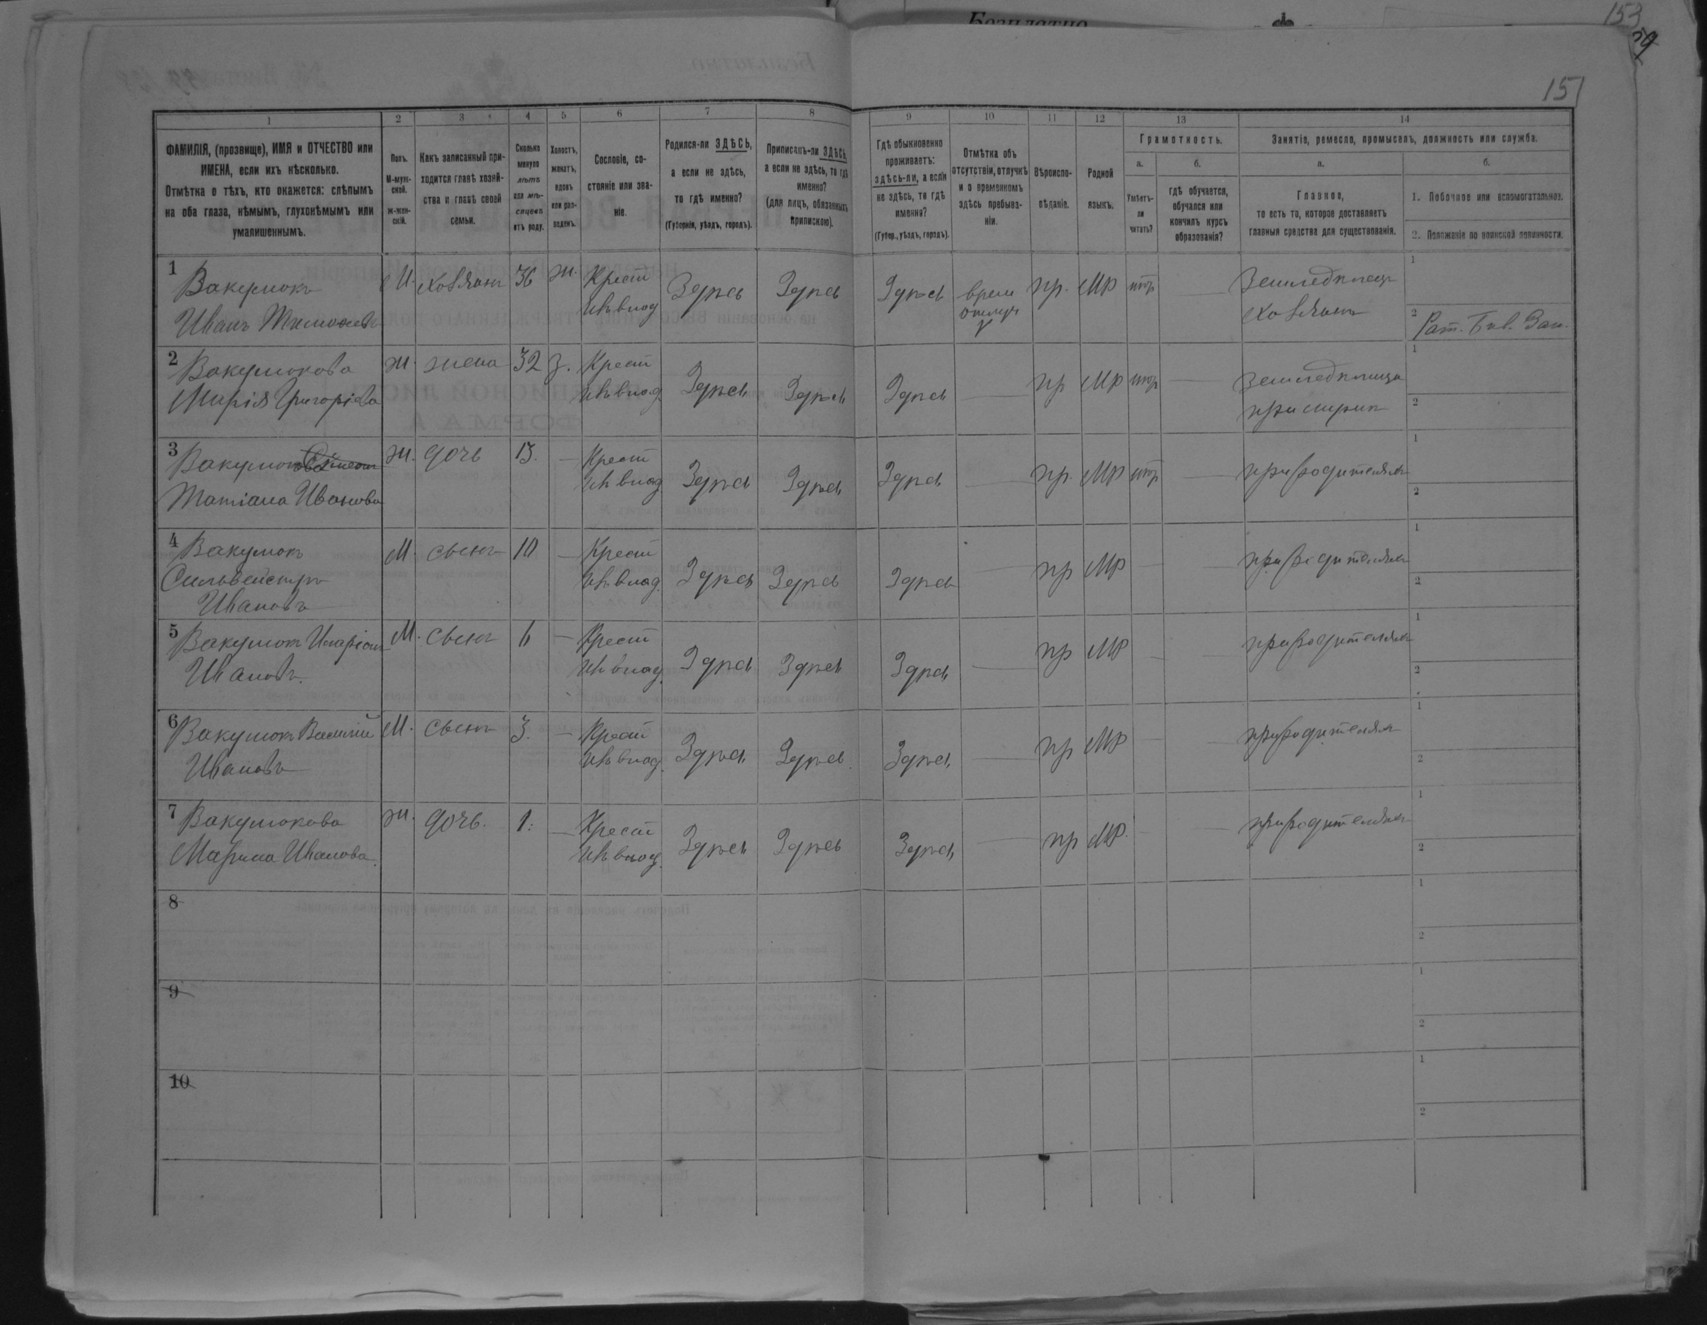 Безплатно
153
151
1
2
3
4
5
6
7
8
9
10
11
12
13
14
ФАМИЛІЯ, (прозвище), ИМЯ и ОТЧЕСТВО или
ИМЕНА, если ихъ нѣсколько.
Отмѣтка о тѣхъ, кто окажется: слѣпымъ
на оба глаза, нѣмымъ, глухонѣмымъ или
умалишеннымъ.
Полъ.
М-муж-
ской.
ж-жен-
скій.
Какъ записанный при-
ходится главѣ хозяй-
ства и главѣ своей
семьи.
Сколько
минуло
лѣтъ
или мѣ-
сяцевъ
отъ роду.
Холостъ,
женатъ,
вдовъ
или раз-
веденъ.
Сословіе, со-
стояніе или зва-
ніе.
Родился-ли ЗДѢСЬ,
а если не здѣсь,
то гдѣ именно?
(Губернія, уѣздъ, городъ).
Приписанъ-ли ЗДѢСЬ,
а если не здѣсь, то гдѣ
именно?
(для лицъ, обязанныхъ
припискою).
Гдѣ обыкновенно
проживаетъ:
здѣсь-ли, а если
не здѣсь, то гдѣ
именно?
(Губер., уѣздъ, городъ).
Отмѣтка объ
отсутствіи, отлучкѣ
и о временномъ
здѣсь пребыва-
ніи.
Вѣроиспо-
вѣданіе.
Родной
языкъ.
Грамотность.
а.
Умѣетъ-
ли
читать?
б.
гдѣ обучается,
обучался или
кончилъ курсъ
образованія?
Занятія, ремесло, промыселъ, должность или служба.
а.
Главное,
то есть то, которое доставляетъ
главныя средства для существованія.
б.
1. Побочное или вспомогательное.
2. Положеніе по воинской повинности.
1
Вакулюкъ
Иванъ
М.
хозяинъ
36
ж.
Крест
Здѣсь
Здѣсь
Здѣсь
врем
пр.
МР
земледѣлецъ
хозяинъ
1
2
2
Вакулюкова
Марія Григоріева
ж.
жена
32
з.
Крест
Здѣсь
Здѣсь
Здѣсь
пр
МР
земледѣлица
при мужѣ
1
2
3
Татіана Иванова
ж.
дочь
13.
Крест
Здѣсь
Здѣсь
Здѣсь
пр.
МР
при родителях
1
2
4
Вакулюкъ
Сильвестръ
Ивановъ
М
сынъ
10
Крест
Здѣсь
Здѣсь
Здѣсь
пр
МР
при родителях
1
2
5
Вакулюкъ Иларіонъ
Ивановъ.
М.
сынъ
Крест
Здѣсь
Здѣсь
Здѣсь
пр
МР
при родителях
1
2
6
Вакулюкъ Василій
Ивановъ
М.
сынъ
3.
Крест
Здѣсь
Здѣсь
Здѣсь
пр
МР
при родителях
1
2
7
Вакулюкова
Марина Иванова.
ж.
дочь.
1.
Крест
Здѣсь
Здѣсь
Здѣсь
пр
МР.
при родителях
1
2
8
1
2
9
1
2
10
1
2